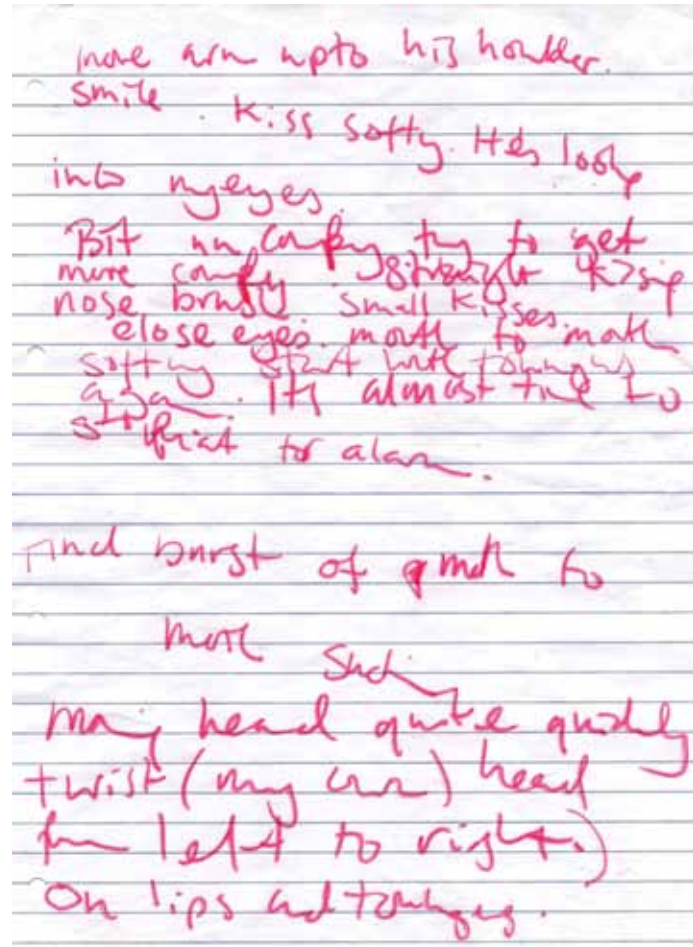 move arm upto his houlder.
smile. Kiss softly. He's looks
into my eyes.
Bit uncomfy try to get
more comfy straight kissing
nose brush small kisses.
close eyes. mouth to mouth
softly start with toungus
again. Its almost time to
for alarm.
Final burst of mouth to
mouth Sucking
Moving head quite quickly
twist (my own) head
from left to right.)
On lips and tounges.